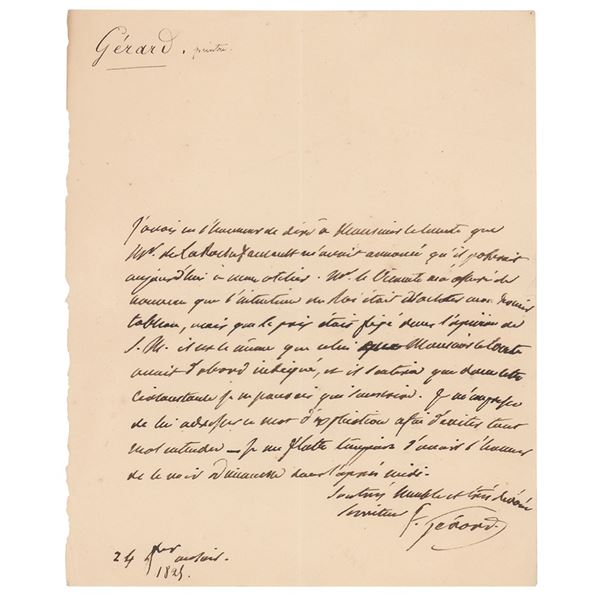 Gérard. peintre.
J'avais eu l'honneur de dire à Monsieur le Comte que
Mr. de LaRochefoucault m'avait annoncé qu'il poserait
aujourd'hui à mon atelier. Mr. le Vicomte m'a assuré de
nouveau que l'intention du Roi était d'acheter mon dernier
tableau, mais que le prix était fixé dans l'opinion de
S. M. il est le même que celui que Monsieur le Comte
avait d'abord indiqué, et il sentira que dans cette
circonstance je ne pouvais que souscrire. Je m'empresse
de lui adresser ce mot d'explication afin d'éviter tout
mal entendu — je me flatte toujours d'avoir l'honneur
de le voir Dimanche dans l'après midi.
Son très humble et très dévoué
Serviteur F. Gérard.
24 au soir.
1825